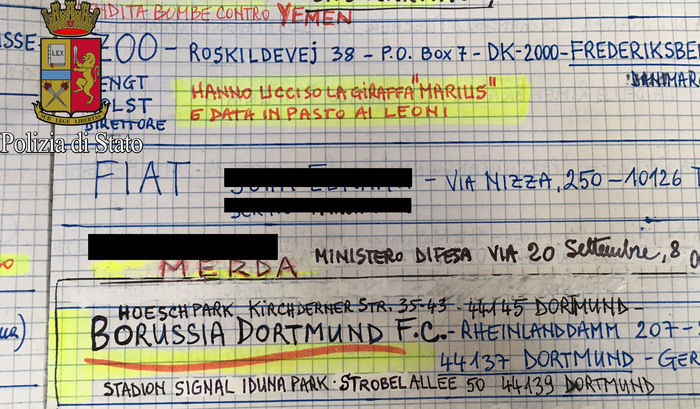 VENDITA BOMBE CONTRO YEMEN
ZOO - ROSKILDEVEJ 38 - P.O. BOX 7 - DK-2000 - FREDERIKSBE
DANIMAR
BENGT
HOLST
DIRETTORE
HANNO UCCISO LA GIRAFFA "MARIUS"
E DATA IN PASTO AI LEONI
LEX
SUB LEGE LIBERTAS
Polizia di Stato
FIAT - VIA NIZZA, 250 - 10126 T
MERDA MINISTERO DIFESA VIA 20 Settembre, 8
HOESCHPARK KIRCHDERNER STR. 35-43 - 44145 DORTMUND -
BORUSSIA DORTMUND F.C. - RHEINLANDDAMM 207-2
44137 DORTMUND - GER
STADION SIGNAL IDUNA PARK - STROBELALLEE 50 44139 DORTMUND